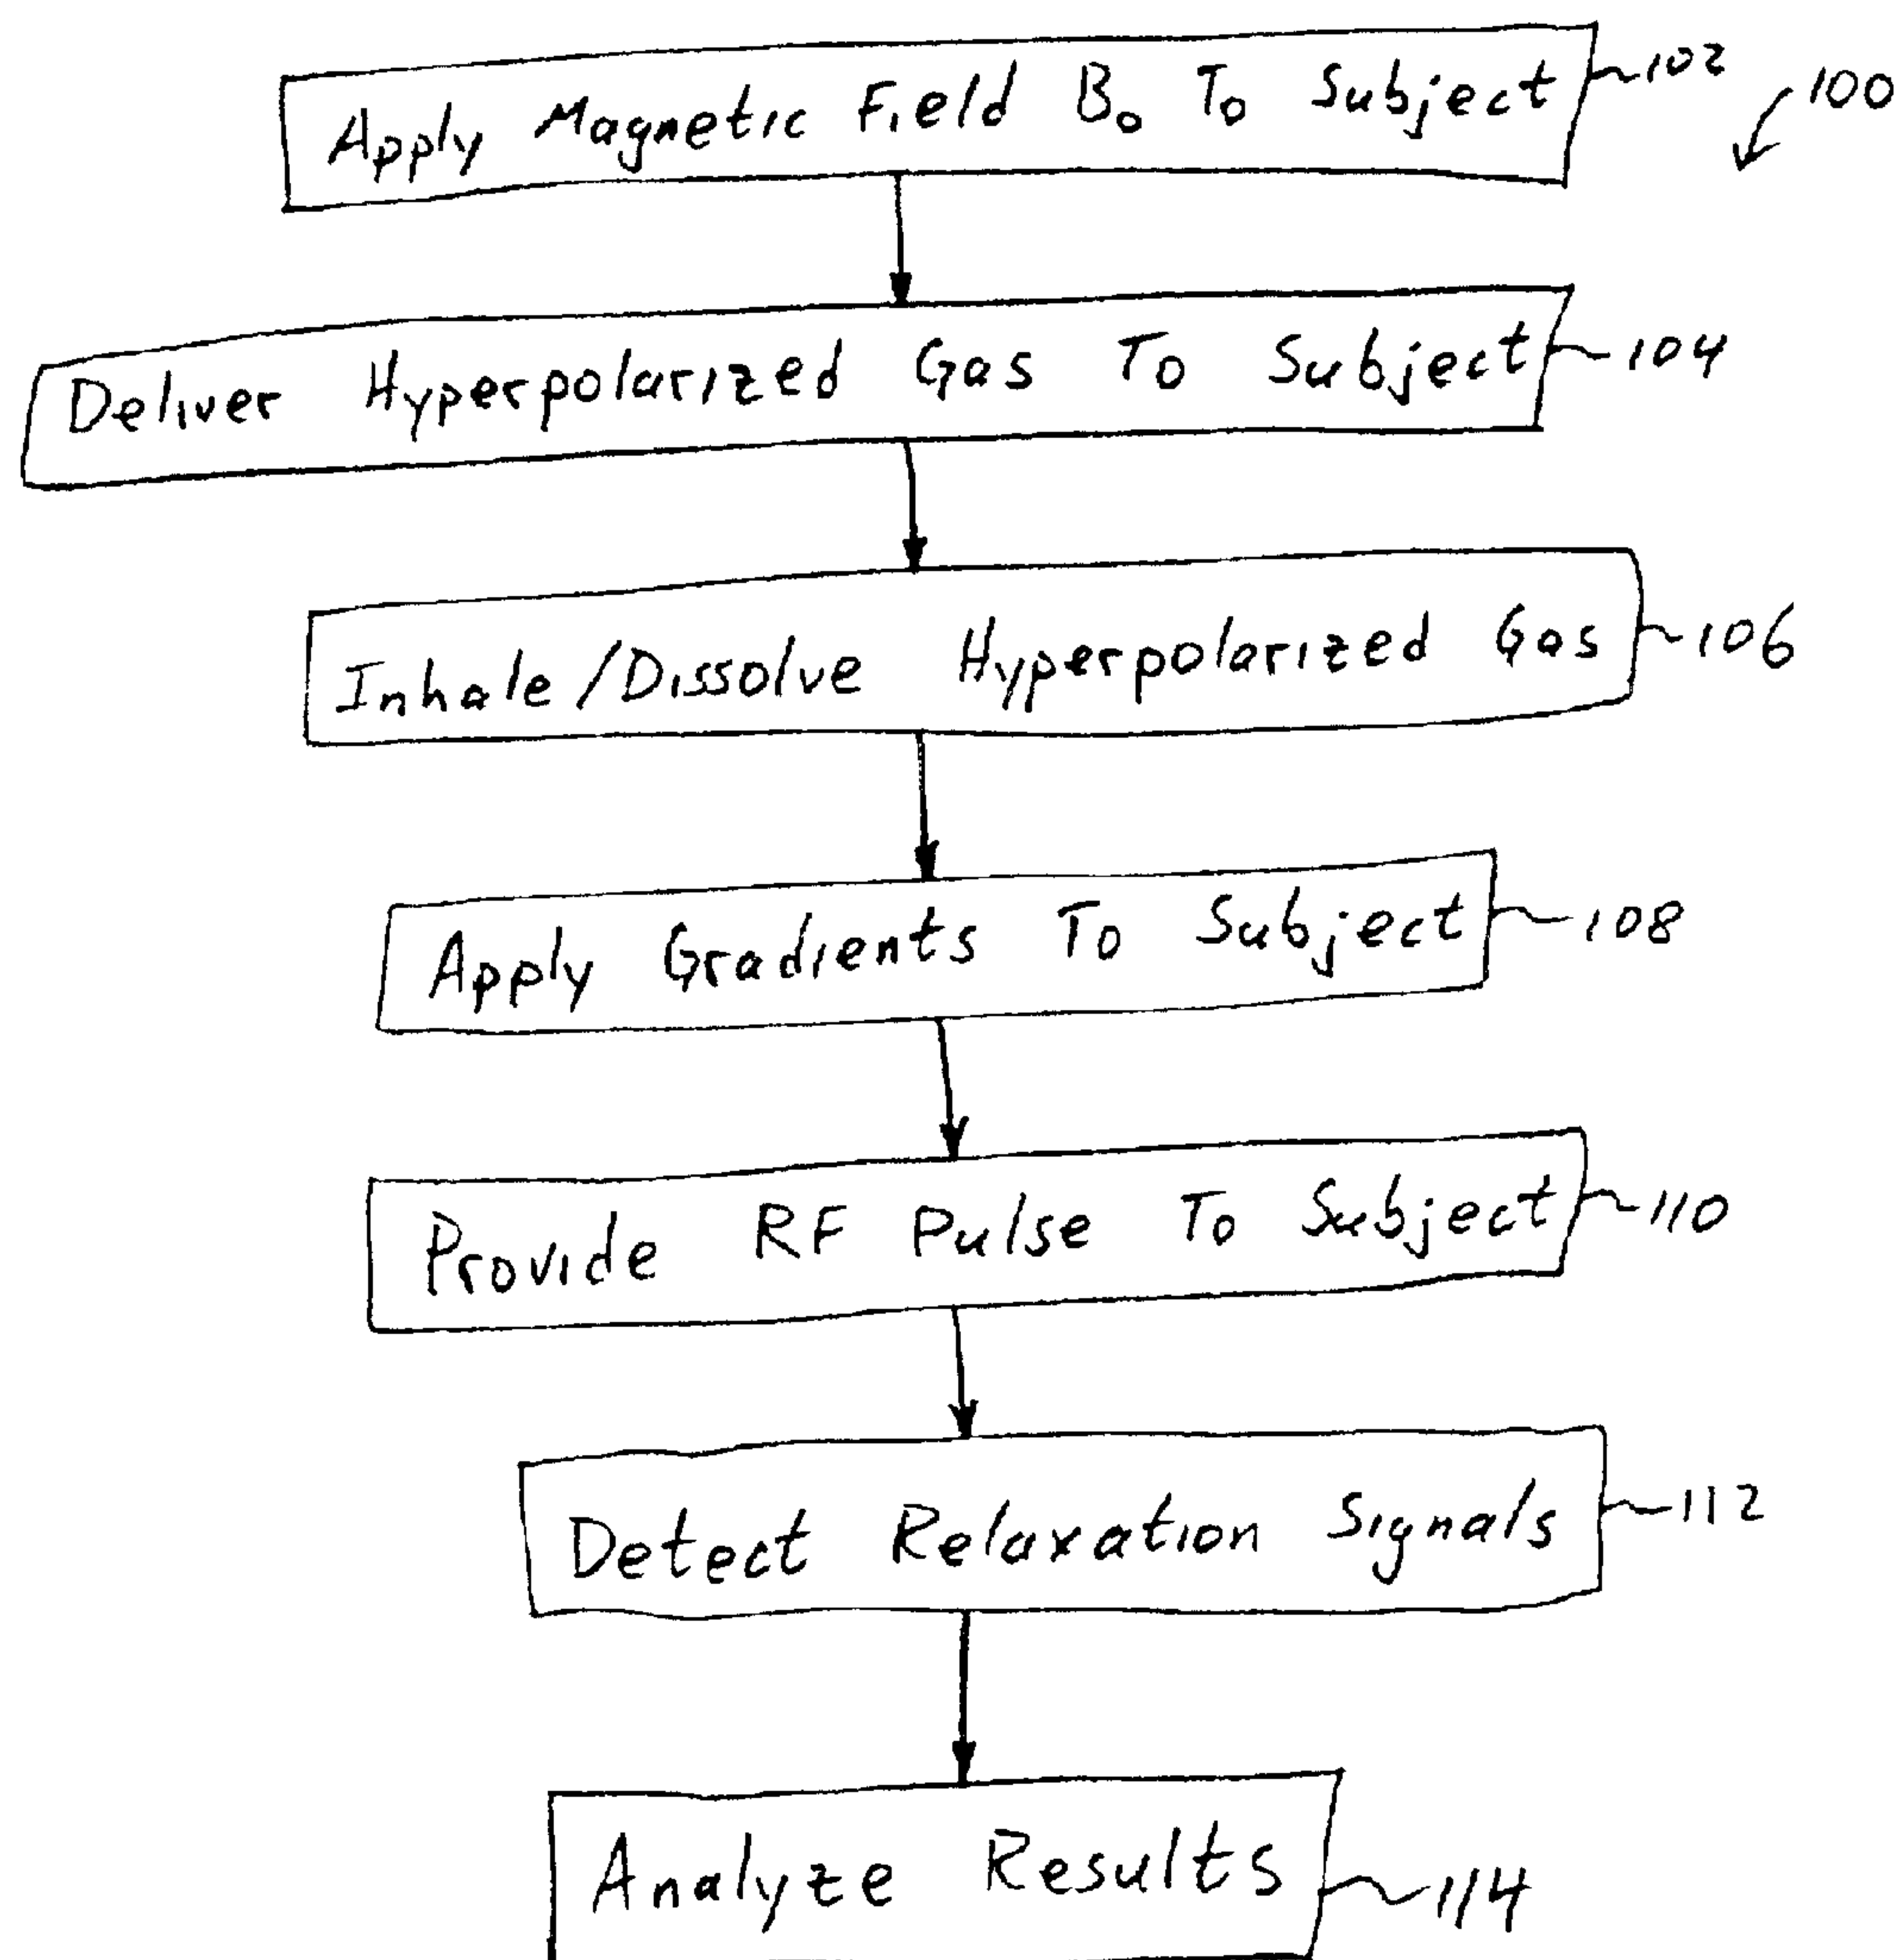 Apply Magnetic Field B₀ To Subject 102
100
Deliver Hyperpolarized Gas To Subject 104
Inhale/Dissolve Hyperpolarized Gas 106
Apply Gradients To Subject 108
Provide RF Pulse To Subject 110
Detect Relaxation Signals 112
Analyze Results 114